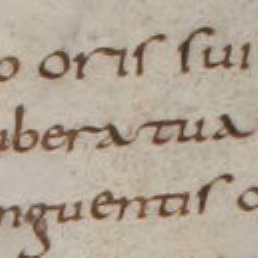 o oris sui
ubera tua
nguentis o